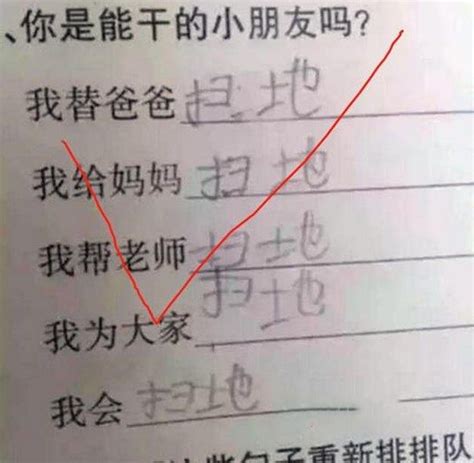 、你是能干的小朋友吗?
我替爸爸扫地
我给妈妈扫地
我帮老师扫地
我为大家扫地
我会扫地
些句子重新排排队